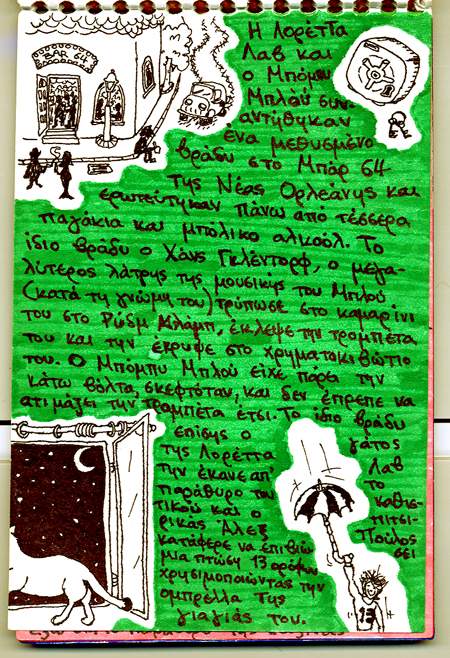 BAR 64
Η Λορέττα
Λαβ και
ο Μπόμπυ
Μπλού συν-
αντήθηκαν
ένα μεθυσμένο
βράδυ στο Μπάρ 64
της Νέας Ορλεάνης και
ερωτεύτηκαν πάνω από τέσσερα
παγάκια και μπόλικο αλκοόλ. Το
ίδιο βράδυ ο Χάνς Γκλέντορφ, ο μεγα-
λύτερος λάτρης της μουσικής του Μπλού
(κατά τη γνώμη του) τρύπωσε στο καμαρίνι
του στο Κλάμπ, έκλεψε την τρομπέτα
του και την έκρυψε στο χρηματοκιβώτιο
του. Ο Μπόμπυ Μπλού είχε πάρει την
κάτω βόλτα, σκεφτόταν, και δεν έπρεπε να
ατιμάζει την τρομπέτα έτσι. Το ίδιο βράδυ
επίσης ο γάτος
της Λορέττα Λαβ
την έκανε απ' το
παράθυρο του καθισ-
τικού και ο πιτσι-
ρικάς Άλεξ Πούλος
κατάφερε να επιβιώσει
μια πτώση 13 ορόφων
χρησιμοποιώντας την
ομπρέλλα της
γιαγιάς του.
13